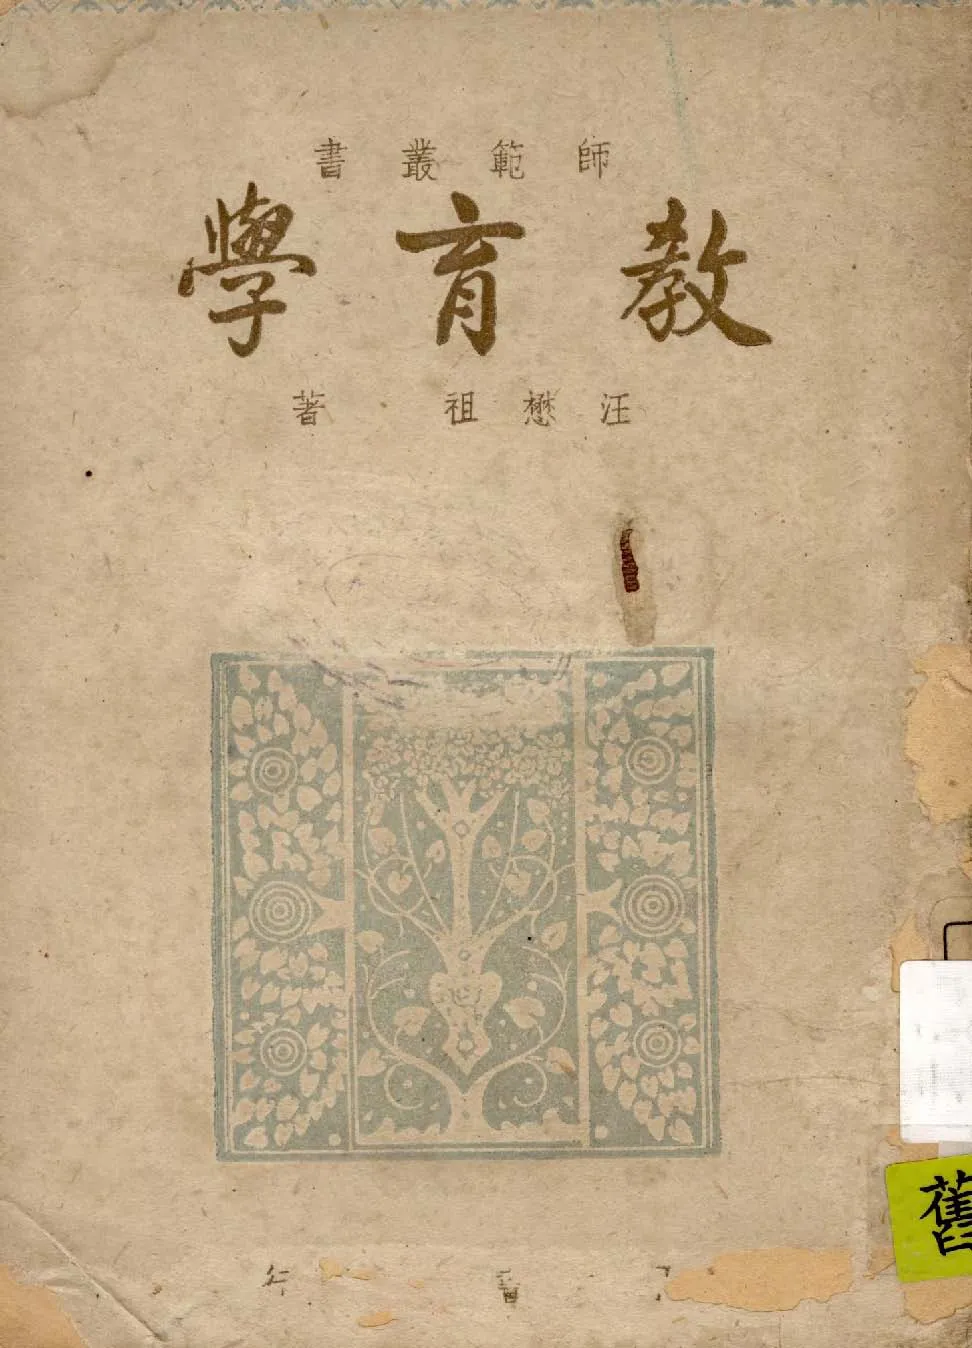 師範叢書
教育學
汪懋祖 著
舊
行